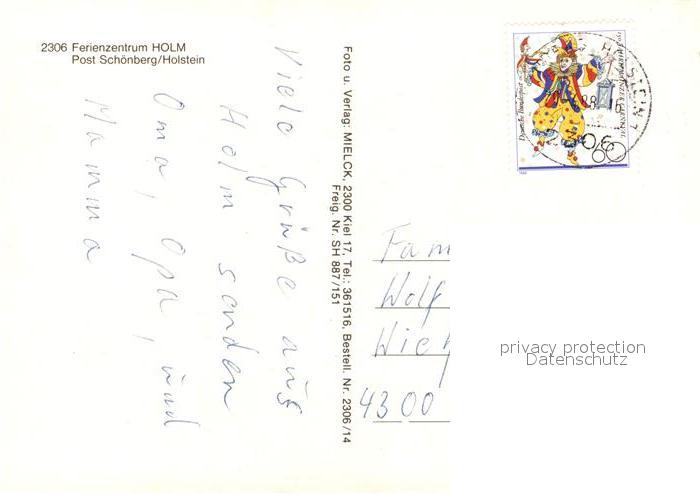 2306 Ferienzentrum HOLM
Post Schönberg/Holstein
Viele Grüße aus
Holm senden
Oma, Opa, und
Mamma
Foto u. Verlag: MIELCK, 2300 Kiel 17, Tel.: 361516, Bestell. Nr. 2306/14
Freig. Nr. SH 887/151
80
2306
Fam
Wolf
Wich
4300
privacy protection
Datenschutz